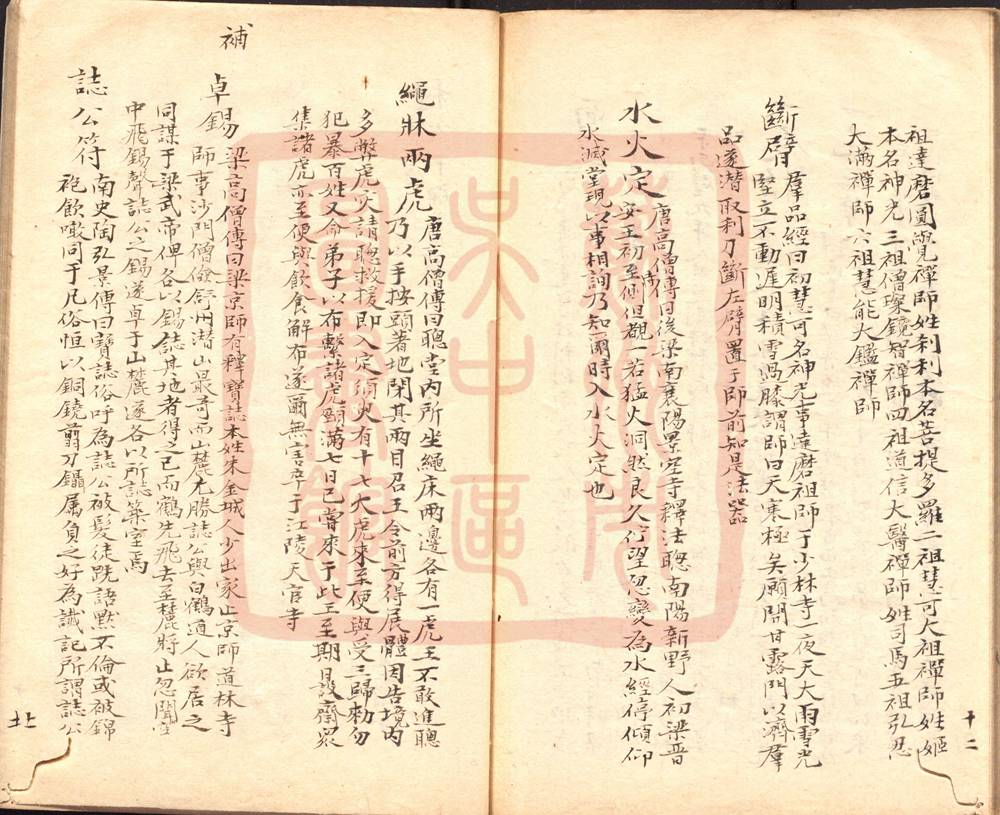 祖達磨圓覺禪師姓刹利本名菩提多羅二祖慧可大祖禪師姓姬
本名神光三祖僧璨鏡智禪師四祖道信大醫禪師姓司馬五祖弘忍
大滿禪師六祖慧能大鑑禪師
斷臂 羣品經曰初慧可名神光事達磨祖師于少林寺一夜天大雨雪光
堅立不動遲明積雪過膝謂師曰天寒極矣願開甘露門以濟羣
品遂潛取利刀斷左臂置于師前知是法器
水火定 唐高僧傳曰後梁南襄陽景空寺釋法聰南陽新野人初梁晉
安王初至側但觀一若猛火洞然良久佇望忽變為水經停傾仰
水滅堂現以事相詢乃知爾時入水火定也
繩牀兩虎 唐高僧傳曰聰堂内所坐繩床兩邊各有一虎王不敢進聰
乃以手按頭著地閉其兩目召王令前方得展體因告境内
多弊虎灾請聰救援即入定須臾有十七大虎來至便與受三歸勑勿
犯暴百姓又命弟子以布繫諸虎頸滿七日已當來于此王至期設齋眾
集諸虎亦至便與飲食解布遂爾無害卒于江陵天宫寺
補
卓錫 梁高僧傳曰梁京師有釋寶誌本姓朱金城人少出家止京師道林寺
師事沙門僧儉舒州潛山最奇而山麓尤勝誌公與白鶴道人欲居之
同謀于梁武帝俾各以錫誌其地者得之已而鶴先飛去至麓將止忽聞空
中飛錫聲誌公之錫遂卓于山麓遂各以所誌築室焉
誌公符 南史陶弘景傳曰寶誌俗呼為誌公被髮徒跣語默不倫或被錦
袍飲噉同于凡俗恒以銅鏡剪刀鑷属負之好為讖記所謂誌公
十二